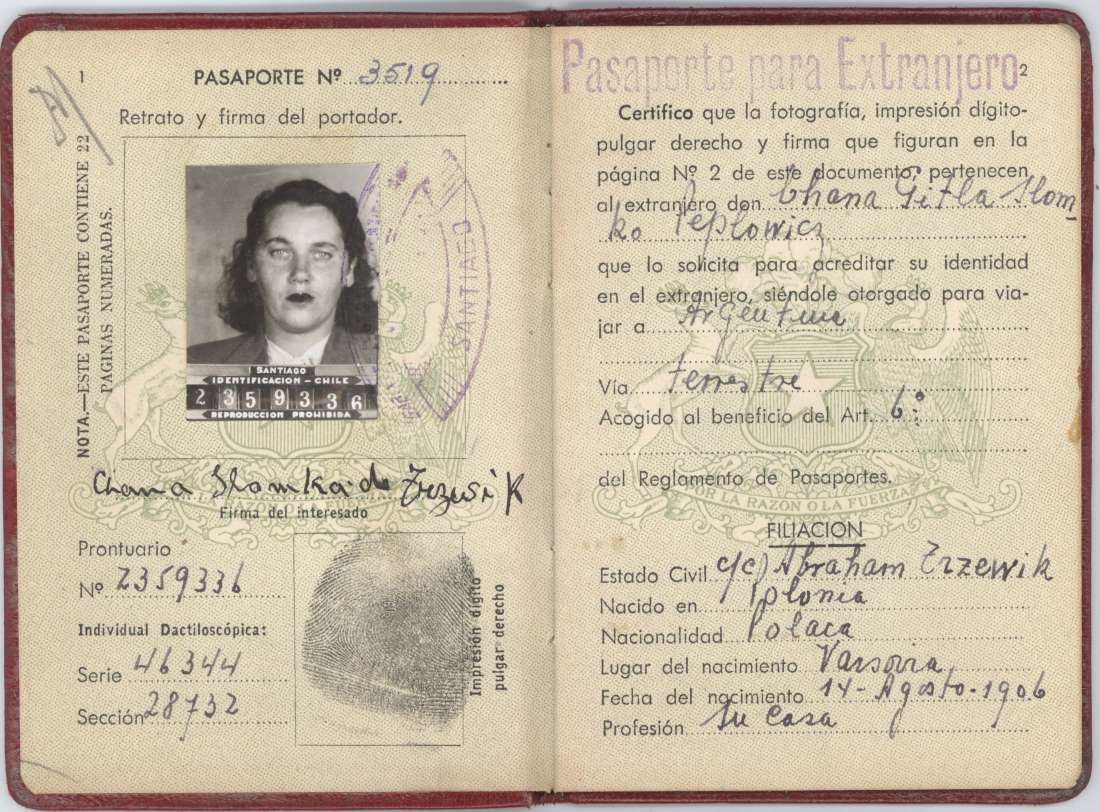 1
PASAPORTE Nº 3519
Retrato y firma del portador.
NOTA.—ESTE PASAPORTE CONTIENE 22
PAGINAS NUMERADAS.
SANTIAGO
SANTIAGO
IDENTIFICACION - CHILE
2359336
REPRODUCCION PROHIBIDA
Chana Slomka de Zrzewik
Firma del interesado
Prontuario
Nº 2359336
Individual Dactiloscópica:
Serie 46344
Sección 28732
Impresión dígito
pulgar derecho
Pasaporte para Extranjero
2
Certifico que la fotografía, impresión dígito-
pulgar derecho y firma que figuran en la
página Nº 2 de este documento, pertenecen
al extranjero don Chana Gitla Slom
ko Peplowicz
que lo solicita para acreditar su identidad
en el extranjero, siéndole otorgado para via-
jar a Argentina
Vía terrestre
Acogido al beneficio del Art. 6º
del Reglamento de Pasaportes.
POR LA RAZON O LA FUERZA
FILIACION
Estado Civil c/c) Abraham Zrzewik
Nacido en Polonia
Nacionalidad Polaca
Lugar del nacimiento Varsovia
Fecha del nacimiento 14-Agosto-1906
Profesión Su Casa